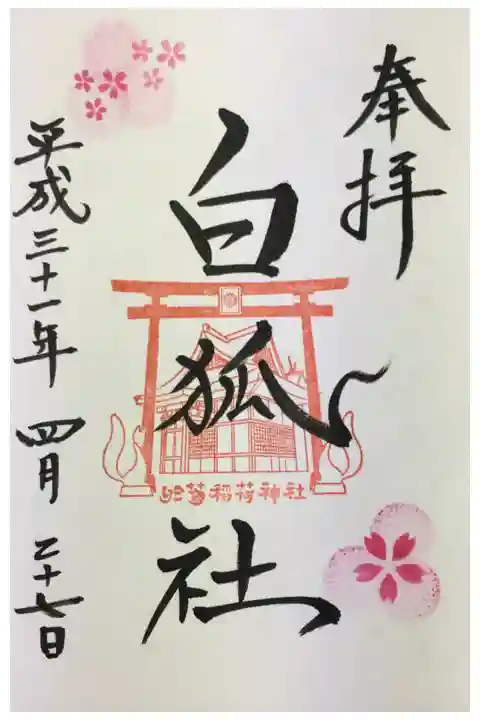 奉拝
白狐社
笠稲荷神社
平成三十一年 四月 二十七日